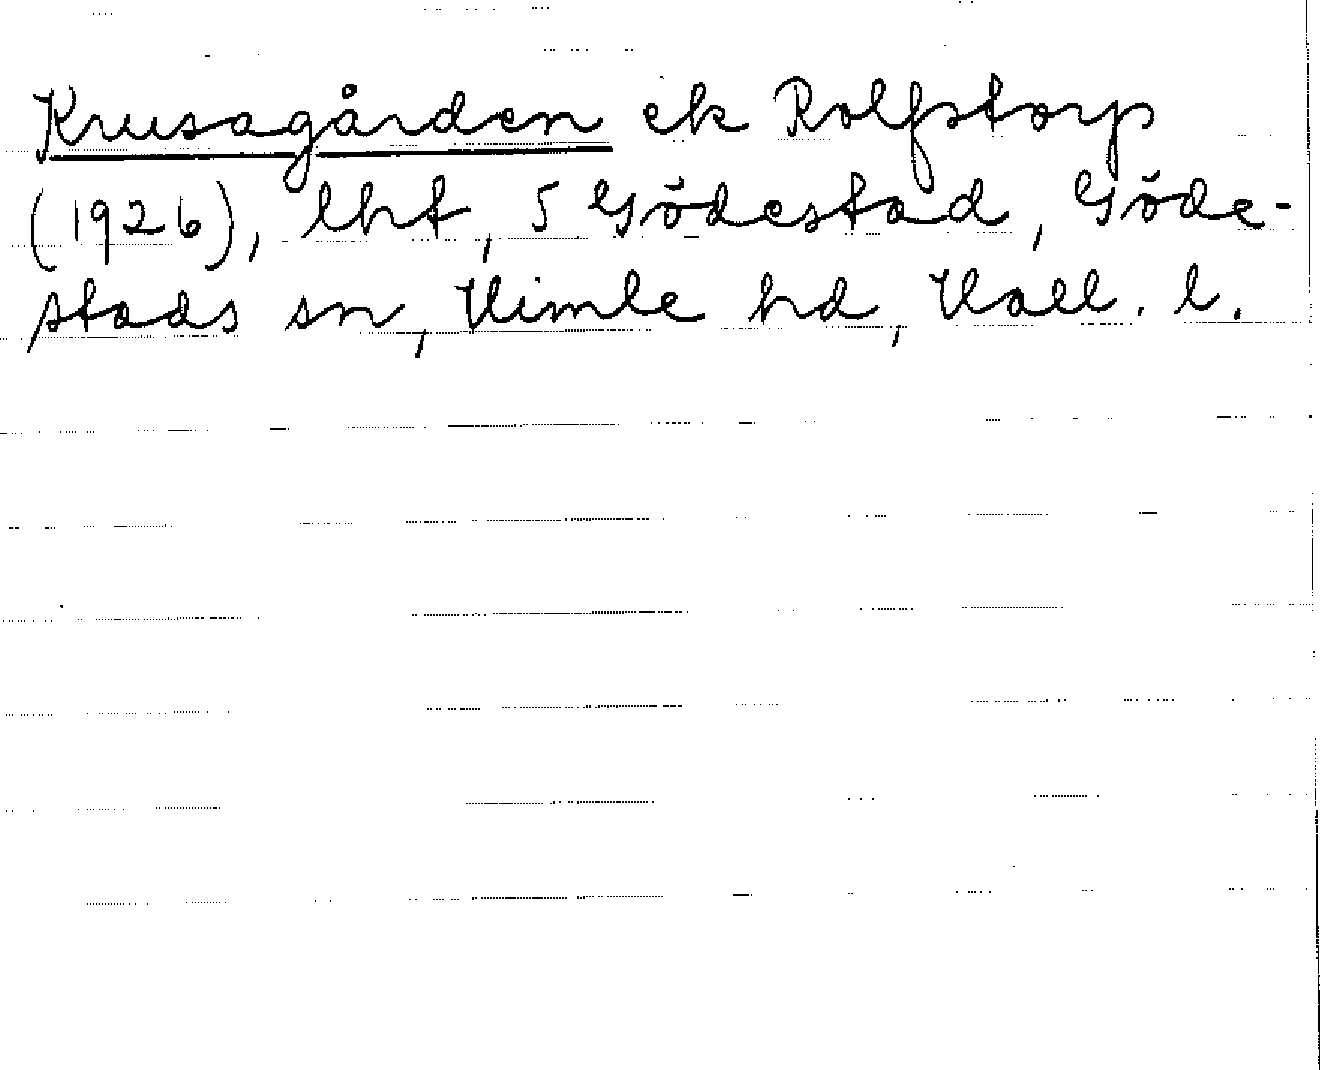 Krusagården ek Rolfstorp
(1926), lht, 5 Gödestad, Göde-
stads sn, Himle hd, Hall. l.